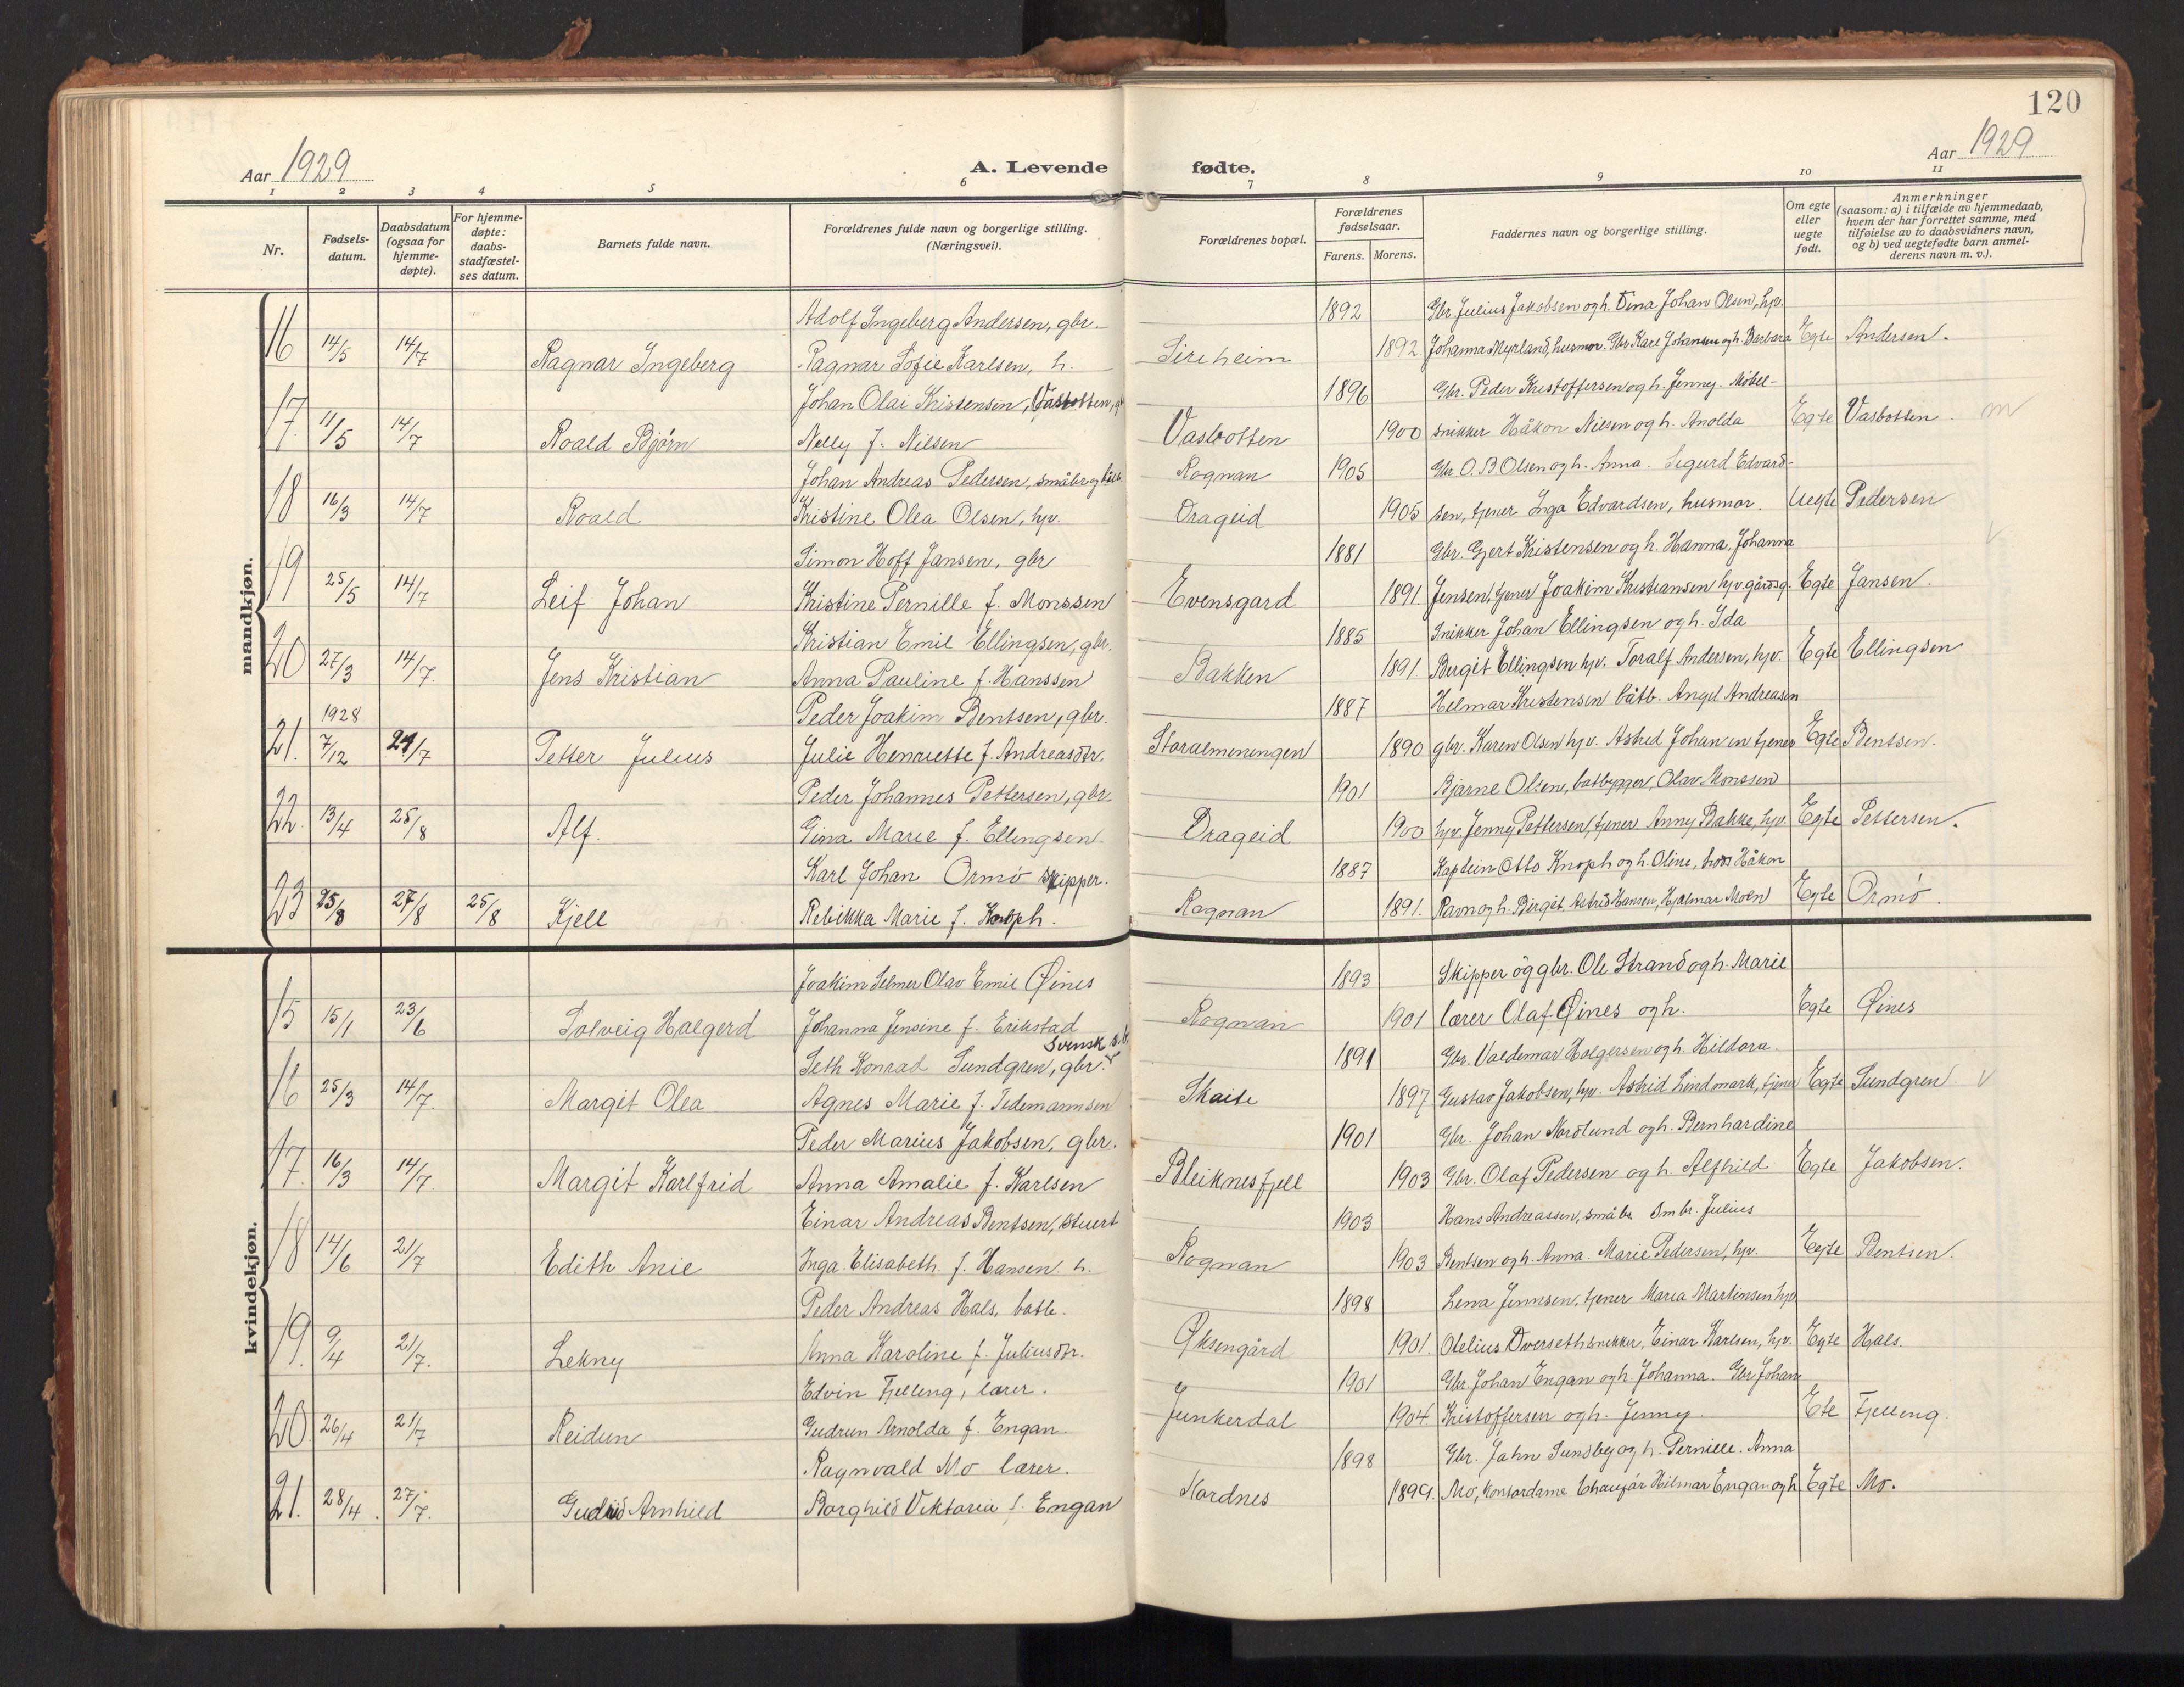 120
Aar 1929
A. Levende fødte.
Aar 1929
1 2 3 4 5 6 7 8 9 10 11
Nr.
Fødselsdatum.
Daabsdatum (ogsaa for hjemmedøpte).
For hjemmedøpte: daabsstadfæstelses datum.
Barnets fulde navn.
Forældrenes fulde navn og borgerlige stilling. (Næringsvei).
Forældrenes bopæl.
Forældrenes fødselsaar.
Farens. Morens.
Faddernes navn og borgerlige stilling.
Om egte eller uegte født.
Anmerkninger (saasom: a) i tilfælde av hjemmedaab, hvem der har forrettet samme, med tilføielse av to daabsvidners navn, og b) ved uegtefødte barn anmelderens navn m. v.).
mandkjøn.
Adolf Ingeberg Andersen, gbr. 1892 Gbr. Julius Jakobsen og h. Dina Johan Olsen, hjv.
16 14/5 14/7 Ragnar Ingeberg Ragnar Sofie Karlsen, h. 1892 Johanna Myrland, husmor. Gbr. Karl Johansen og h. Barbara Egte Andersen.
Johan Olai Kristensen, Vasbotten, 1896 Gbr. Peder Kristoffersen og h. Jenny. Møbel-
17. 11/5 14/7 Roald Bjørn Nelly f. Nilsen Vasbotten 1900 snikker Håkon Nilsen og h. Arnolda Egte Vasbotten. m
Johan Andreas Pedersen, småbr. og Rognan 1905 Gbr. O. B. Olsen og h. Anna. Sigurd Edvard-
18 16/3 14/7 Roald Kristine Olea Olsen, hjv. Drageid 1905 sen, tjener Inga Edvardsen, husmor. Uegte Pedersen
Simon Hoff Jansen, gbr 1881 Gbr. Gjert Kristensen og h. Hanna, Johanna v
19 25/5 14/7 Leif Johan Kristine Pernille f. Monssen Evensgard 1891 Jensen, tjener Joakim Kristiansen hjv. gårdsg. Egte Jansen.
Kristian Emil Ellingsen, gbr. 1885 Snikker Johan Ellingsen og h. Ida
20 27/3 14/7. Jens Kristian Anna Pauline f. Hanssen Bakken 1891. Bergit Ellingsen hjv. Toralf Andersen, hjv. Egte Ellingsen
1928 Peder Joakim Bentsen, gbr. 1887 Helmar Kristensen båtb. Angel Andreasen
21. 7/12 21/7 Petter Julius Julie Henriette f. Andreasdtr. Storalmenningen 1890 gbr. Karen Olsen hjv. Astrid Johansen tjener Egte Bentsen.
Peder Johannes Pettersen, gbr. 1901 Bjarne Olsen, båtbygger, Olav Monssen
22. 13/4 25/8 Alf. Gina Marie f. Ellingsen. Drageid 1900 hjv. Jenny Pettersen, tjener Anny Bakke, hjv. Egte Pettersen.
Karl Johan Ormø skipper. 1887 Kaptein Otto Knoph og h. Oline, Håkon
23 25/8 27/8 25/8 Kjell Rebikka Marie f. Knoph. Rognan 1891. Ravn og h. Birgit Astrid Hansen, Hjalmar Moen Egte Ormø.
kvindekjøn.
Joakim Selmer Olav Emil Øines 1893 Skipper og gbr. Ole Strand og h. Marie
15 15/1 23/6 Solveig Halgerd Johanna Jensine f. Erikstad Rognan 1901 lærer Olaf Øines og h. Egte Øines
Svensk s.b.
Seth Konrad Sundgren, gbr. 1891 Gbr. Valdemar Holgersen og h. Hildora.
16 25/3 14/7. Margit Olea Agnes Marie f. Tidemannsen Skaite 1897 Gustav Jakobsen, hjv. Astrid Lindmark, tjener Egte Sundgren v
Peder Marius Jakobsen, gbr. 1901 Gbr. Johan Nordlund og h. Bernhardine
17. 16/3 14/7. Margit Karlfrid Anna Amalie f. Karlsen Bleiknesfjell 1903 Gbr. Olaf Pedersen og h. Alfhild Egte Jakobsen.
Einar Andreas Bentsen, stuert 1903 Hans Andreassen, småbr Smbr. Julius
18 14/6 21/7 Edith Anie Inga Elisabeth f. Hansen h. Rognan 1903 Bentsen og h. Anna. Marie Pedersen, hjv. Egte Bentsen.
Peder Andreas Hals, båtb. 1898 Lena Jennsen, tjener Maria Martinsen hjv
19. 9/4 21/7. Lekny Anna Karoline f. Juliusdtr. Øksengård 1901. Otelius Dverseth snekker, Einar Karlsen, hjv. Egte Hals.
Edvin Fjelleng, lærer. 1901 Gbr. Johan Engan og h. Johanna. Gbr Johan
20. 26/4 21/7 Reidun Gudrun Arnolda f. Engan. Junkerdal 1904 Kristoffersen og h. Jenny. Ete Fjelleng.
Ragnvald Mo lærer. 1898 Gbr. Jahn Sundby og h. Pernille. Anna
21. 28/4. 27/7. Gudrid Arnhild Borghild Viktoria f. Engan Nordnes 1899. Mo, kontordame Chaufør Hilmar Engan og h Egte Mo.